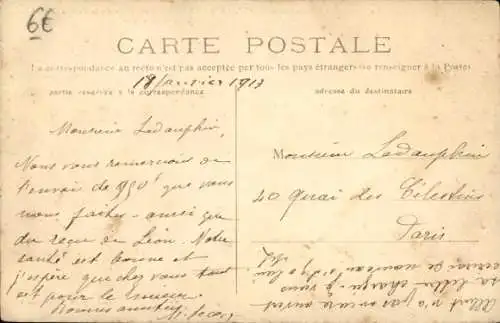 6€
CARTE POSTALE
La correspondance au recto n'est pas acceptée par tous les pays étrangers (se renseigner à la Poste)
18 Janvier 1913
partie réservée à la correspondance
adresse du destinataire
Monsieur Ladauphin,
Nous vous remercions de
l'envoi de 950f que vous
nous faites - ainsi que
du reçu de Léon. Notre
santé est bonne et
j'espère que chez vous tout
est pour le
Bonnes
Monsieur Ladauphin
40 Quai des Célestins
Paris
Albert n'a pas encore ouvert
sa lettre chargée - je vous
écrirai de nouveau